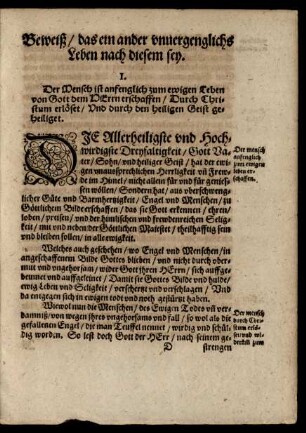 Beweiß / das ein ander vnuergenglichs
Leben nach diesem sey.
I.
Der Mensch ist anfenglich zum ewigen Leben
von Gott dem HErrn erschaffen / Durch Chri-
stum erlöset / Vnd durch den heiligen Geist ge-
heiliget.
DIE Allerheiligste vnd Hoch-
wirdigste Dreyfaltigkeit / Gott Va-
ter / Sohn / vnd heiliger Geist / hat der ewi-
gen vnaussprechlichen Herrligkeit vñ Frew-
de im Himel / nicht allein für vnd für geniess-
sen wöllen / Sondern hat / aus vberschweng-
licher Güte vnd Barmhertzigkeit / Engel vnd Menschen / zu
Göttlichen Bilde erschaffen / das sie Gott erkennen / ehren /
loben / preisen / vnd der himlischen vnd frewdenreichen Selig-
keit / mit vnd neben der Göttlichen Maiestet / theilhafftig sein
vnd bleiben sollen / in alle ewigkeit.
Der mensch
anfenglich
zum ewigen
leben er-
schaffen.
Welches auch geschehen / wo Engel vnd Menschen / in
angeschaffenem Bilde Gottes blieben / vnd nicht durch vber-
mut vnd vngehorsam / wider Gott ihren HErrn / sich auffge-
bewmet vnd auffgeleinet / Damit sie Gottes Bilde vnd hulde /
ewig Leben vnd Seligkeit / verschertzt vnd verschlagen / Vnd
da entgegen sich in ewigen todt vnd noth gestürtzt haben.
Wiewol nun die Menschen / des Ewigen Todes vñ ver-
damniß / von wegen ihres vngehorsams vnd fall / so wol als die
gefallenen Engel / die man Teuffel nennet / wirdig vnd schül-
dig worden. So lest doch Gott der HErr / nach seinem ge-
Der mensch
durch Chri-
stum erlö-
set vnd wi-
derkufft zum
D strengen